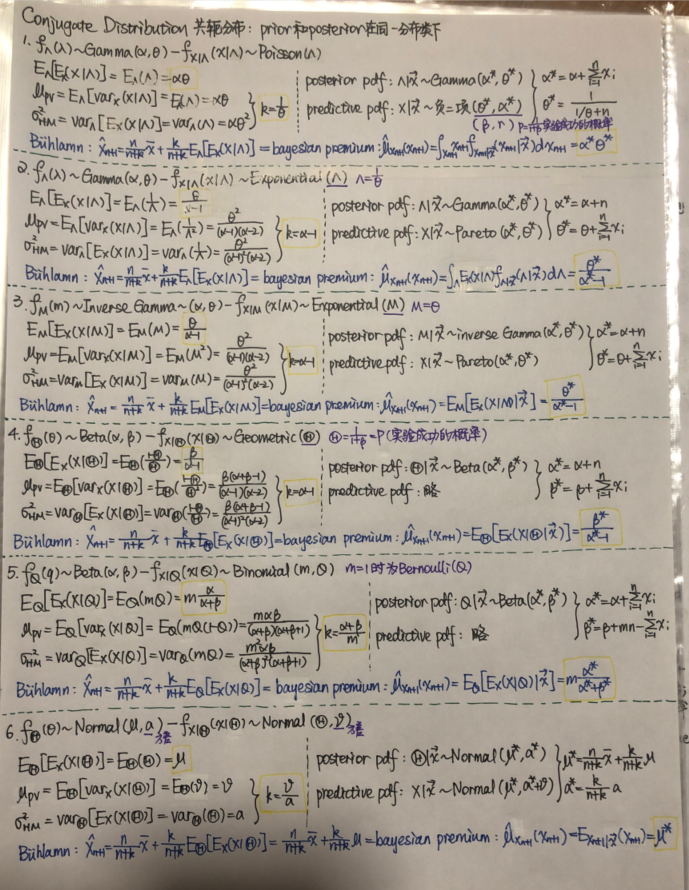 Conjugate Distribution 共轭分布: prior和posterior在同一分布类下
1. f_Λ(λ)~Gamma(α,θ) - f_X|Λ(x|Λ)~Poisson(Λ)
E_Λ[E_X(X|Λ)] = E_Λ(Λ) = αθ
μ_PV = E_Λ[var_X(X|Λ)] = E_Λ(Λ) = αθ
σ²_HM = var_Λ[E_X(X|Λ)] = var_Λ(Λ) = αθ²
k = 1/θ
posterior pdf: Λ|x⃗ ~ Gamma(α*, θ*)
predictive pdf: X|x⃗ ~ 负二项(θ*, α*)
(β, r)
α* = α + Σ_{i=1}^n x_i
θ* = 1/(1/θ+n)
Bühlamn: X̂_{n+1} = n/(n+k) x̄ + k/(n+k) E_Λ[E_X(X|Λ)] = bayesian premium: μ̂_{X_{n+1}}(x_{n+1}) = ∫_{X_{n+1}} x_{n+1} f_{X_{n+1}|x⃗}(x_{n+1}|x⃗) dx_{n+1} = α*θ*
2. f_Λ(λ)~Gamma(α,θ) - f_X|Λ(x|Λ)~Exponential(Λ) Λ=1/θ
E_Λ[E_X(X|Λ)] = E_Λ(1/Λ) = θ/(α-1)
μ_PV = E_Λ[var_X(X|Λ)] = E_Λ(1/Λ²) = θ²/((α-1)(α-2))
σ²_HM = var_Λ[E_X(X|Λ)] = var_Λ(1/Λ) = θ²/((α-1)²(α-2))
k = α-1
posterior pdf: Λ|x⃗ ~ Gamma(α*, θ*)
predictive pdf: X|x⃗ ~ Pareto(α*, θ*)
α* = α+n
θ* = θ + Σ_{i=1}^n x_i
Bühlamn: X̂_{n+1} = n/(n+k) x̄ + k/(n+k) E_Λ[E_X(X|Λ)] = bayesian premium: μ̂_{X_{n+1}}(x_{n+1}) = ∫_Λ E_X(X|Λ) f_{Λ|x⃗}(λ|x⃗) dΛ = θ*/(α*-1)
3. f_M(m)~Inverse Gamma~(α,θ) - f_X|M(x|M)~Exponential(M) M=θ
E_M[E_X(X|M)] = E_M(M) = θ/(α-1)
μ_PV = E_M[var_X(X|M)] = E_M(M²) = θ²/((α-1)(α-2))
σ²_HM = var_M[E_X(X|M)] = var_M(M) = θ²/((α-1)²(α-2))
k = α-1
posterior pdf: M|x⃗ ~ inverse Gamma(α*, θ*)
predictive pdf: X|x⃗ ~ Pareto(α*, θ*)
α* = α+n
θ* = θ + Σ_{i=1}^n x_i
Bühlamn: X̂_{n+1} = n/(n+k) x̄ + k/(n+k) E_M[E_X(X|M)] = bayesian premium: μ̂_{X_{n+1}}(x_{n+1}) = E_M[E_X(X|M)|x⃗] = θ*/(α*-1)
4. f_Θ(θ)~Beta(α,β) - f_X|Θ(x|Θ)~Geometric(Θ) Θ=1/(1+β)=P(实验成功的概率)
E_Θ[E_X(X|Θ)] = E_Θ((1-Θ)/Θ) = β/(α-1)
μ_PV = E_Θ[var_X(X|Θ)] = E_Θ((1-Θ)/Θ²) = β(α+β-1)/((α-1)(α-2))
σ²_HM = var_Θ[E_X(X|Θ)] = var_Θ((1-Θ)/Θ) = β(α+β-1)/((α-1)²(α-2))
k = α-1
posterior pdf: Θ|x⃗ ~ Beta(α*, β*)
predictive pdf: 略
α* = α+n
β* = β + Σ_{i=1}^n x_i
Bühlamn: X̂_{n+1} = n/(n+k) x̄ + k/(n+k) E_Θ[E_X(X|Θ)] = bayesian premium: μ̂_{X_{n+1}}(x_{n+1}) = E_Θ[E_X(X|Θ)|x⃗] = β*/(α*-1)
5. f_Q(q)~Beta(α,β) - f_X|Q(x|Q)~Binomial(m,Q) m=1时为Bernoulli(Q)
E_Q[E_X(X|Q)] = E_Q(mQ) = m α/(α+β)
μ_PV = E_Q[var_X(X|Q)] = E_Q(mQ(1-Q)) = mαβ/((α+β)(α+β+1))
σ²_HM = var_Q[E_X(X|Q)] = var_Q(mQ) = m²αβ/((α+β)²(α+β+1))
k = (α+β)/m
posterior pdf: Q|x⃗ ~ Beta(α*, β*)
predictive pdf: 略
α* = α + Σ_{i=1}^n x_i
β* = β + mn - Σ_{i=1}^n x_i
Bühlamn: X̂_{n+1} = n/(n+k) x̄ + k/(n+k) E_Q[E_X(X|Q)] = bayesian premium: μ̂_{X_{n+1}}(x_{n+1}) = E_Q[E_X(X|Q)|x⃗] = m α*/(α*+β*)
6. f_Θ(θ)~Normal(μ,a) - f_X|Θ(x|Θ)~Normal(Θ,v)
方差 方差
E_Θ[E_X(X|Θ)] = E_Θ(Θ) = μ
μ_PV = E_Θ[var_X(X|Θ)] = E_Θ(v) = v
σ²_HM = var_Θ[E_X(X|Θ)] = var_Θ(Θ) = a
k = v/a
posterior pdf: Θ|x⃗ ~ Normal(μ*, a*)
predictive pdf: X|x⃗ ~ Normal(μ*, a*+v)
μ* = n/(n+k) x̄ + k/(n+k) μ
a* = k/(n+k) a
Bühlamn: X̂_{n+1} = n/(n+k) x̄ + k/(n+k) E_Θ[E_X(X|Θ)] = n/(n+k) x̄ + k/(n+k) μ = bayesian premium: μ̂_{X_{n+1}}(x_{n+1}) = E_{X_{n+1}|x⃗}(x_{n+1}) = μ*